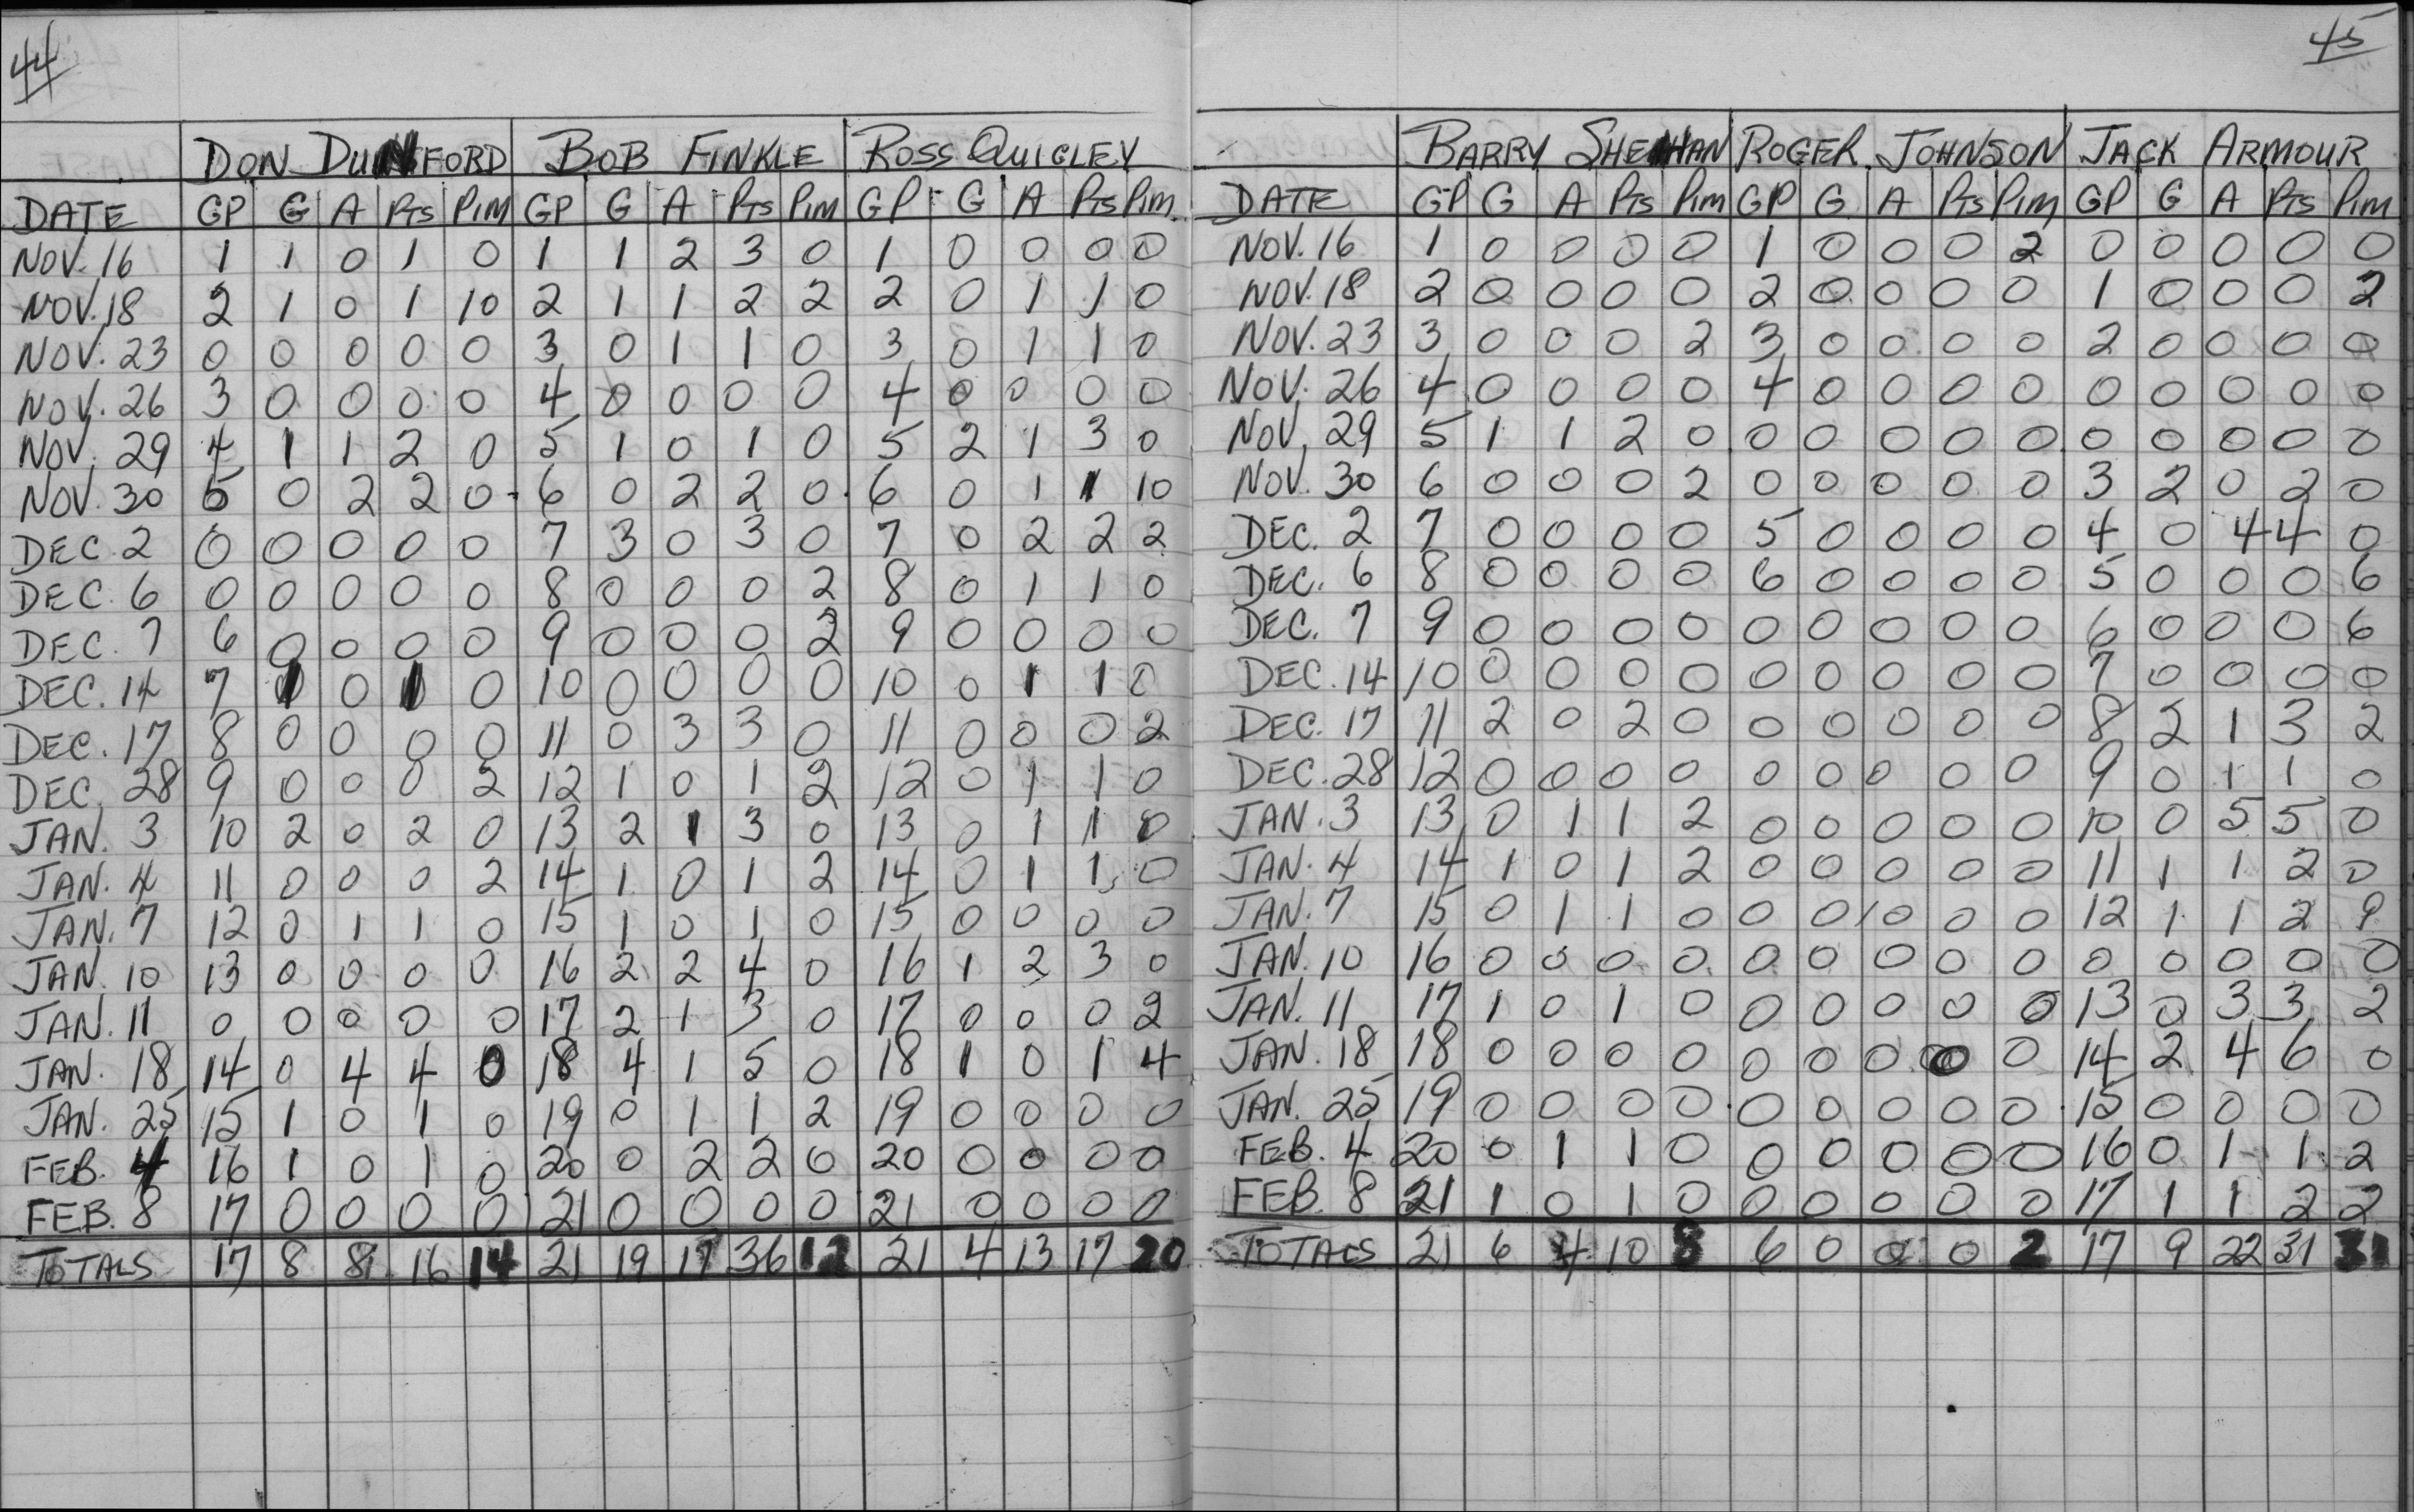 44
DON DUNSFORD BOB FINKLE ROSS QUIGLEY
DATE GP G A PTS PIM GP G A PTS PIM GP G A PTS PIM
NOV. 16 1 1 0 1 0 1 1 2 3 0 1 0 0 0 0
NOV. 18 2 1 0 1 10 2 1 1 2 2 2 0 1 1 0
NOV. 23 0 0 0 0 0 3 0 1 1 0 3 0 1 1 0
NOV. 26 3 0 0 0 0 4 0 0 0 0 4 0 0 0 0
NOV. 29 4 1 1 2 0 5 1 0 1 0 5 2 1 3 0
NOV. 30 5 0 2 2 0 6 0 2 2 0 6 0 1 1 10
DEC 2 0 0 0 0 0 7 3 0 3 0 7 0 2 2 2
DEC. 6 0 0 0 0 0 8 0 0 0 2 8 0 1 1 0
DEC. 7 6 0 0 0 0 9 0 0 0 2 9 0 0 0 0
DEC. 14 7 1 0 1 0 10 0 0 0 0 10 0 1 1 0
DEC. 17 8 0 0 0 0 11 0 3 3 0 11 0 0 0 2
DEC. 28 9 0 0 0 2 12 1 0 1 2 12 0 1 1 0
JAN. 3 10 2 0 2 0 13 2 1 3 0 13 0 1 1 0
JAN. 4 11 0 0 0 2 14 1 0 1 2 14 0 1 1 0
JAN. 7 12 0 1 1 0 15 1 0 1 0 15 0 0 0 0
JAN. 10 13 0 0 0 0 16 2 2 4 0 16 1 2 3 0
JAN. 11 0 0 0 0 0 17 2 1 3 0 17 0 0 0 2
JAN. 18 14 0 4 4 0 18 4 1 5 0 18 1 0 1 4
JAN. 25 15 1 0 1 0 19 0 1 1 2 19 0 0 0 0
FEB. 4 16 1 0 1 0 20 0 2 2 0 20 0 0 0 0
FEB. 8 17 0 0 0 0 21 0 0 0 0 21 0 0 0 0
TOTALS 17 8 8 16 14 21 19 17 36 12 21 4 13 17 20
45
BARRY SHENHAN ROGER JOHNSON JACK ARMOUR
DATE GP G A PTS PIM GP G A PTS PIM GP G A PTS PIM
NOV. 16 1 0 0 0 0 1 0 0 0 2 0 0 0 0 0
NOV. 18 2 0 0 0 0 2 0 0 0 0 1 0 0 0 2
NOV. 23 3 0 0 0 2 3 0 0 0 0 2 0 0 0 0
NOV. 26 4 0 0 0 0 4 0 0 0 0 0 0 0 0 0
NOV. 29 5 1 1 2 0 0 0 0 0 0 0 0 0 0 0
NOV. 30 6 0 0 0 2 0 0 0 0 0 3 2 0 2 0
DEC. 2 7 0 0 0 0 5 0 0 0 0 4 0 4 4 0
DEC. 6 8 0 0 0 0 6 0 0 0 0 5 0 0 0 6
DEC. 7 9 0 0 0 0 0 0 0 0 0 6 0 0 0 6
DEC. 14 10 0 0 0 0 0 0 0 0 0 7 0 0 0 0
DEC. 17 11 2 0 2 0 0 0 0 0 0 8 2 1 3 2
DEC. 28 12 0 0 0 0 0 0 0 0 0 9 0 1 1 0
JAN. 3 13 0 1 1 2 0 0 0 0 0 10 0 5 5 0
JAN. 4 14 1 0 1 2 0 0 0 0 0 11 1 1 2 0
JAN. 7 15 0 1 1 0 0 0 0 0 0 12 1 1 2 9
JAN. 10 16 0 0 0 0 0 0 0 0 0 0 0 0 0 0
JAN. 11 17 1 0 1 0 0 0 0 0 0 13 0 3 3 2
JAN. 18 18 0 0 0 0 0 0 0 0 0 14 2 4 6 0
JAN. 25 19 0 0 0 0 0 0 0 0 0 15 0 0 0 0
FEB. 4 20 0 1 1 0 0 0 0 0 0 16 0 1 1 2
FEB. 8 21 1 0 1 0 0 0 0 0 0 17 1 1 2 2
TOTALS 21 6 4 10 8 6 0 0 0 2 17 9 22 31 31